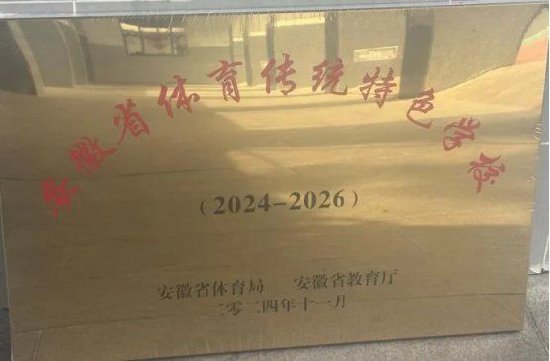 安徽省体育传统特色学校
(2024-2026)
安徽省体育局 安徽省教育厅
二零二四年十一月